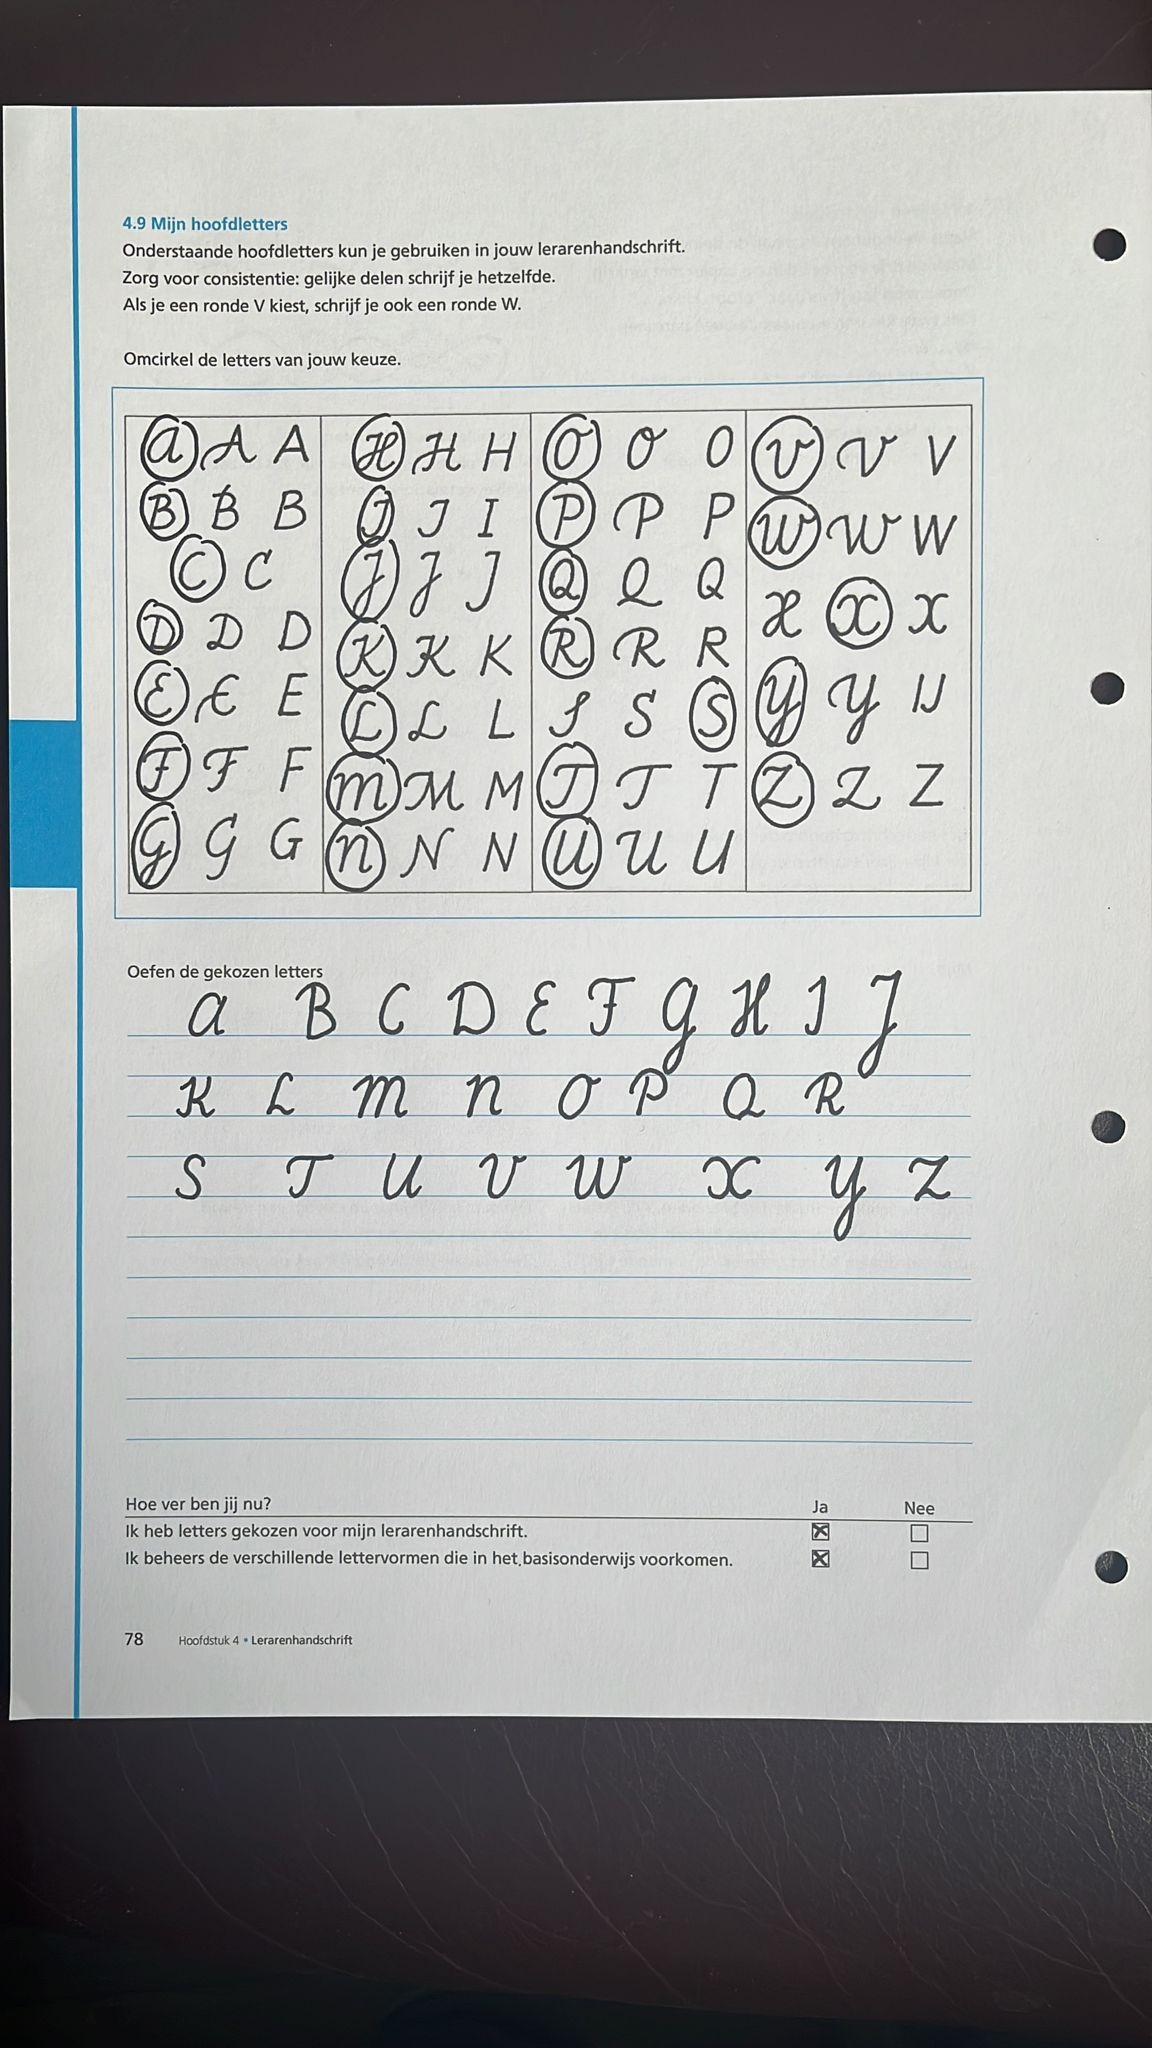 4.9 Mijn hoofdletters
Onderstaande hoofdletters kun je gebruiken in jouw lerarenhandschrift.
Zorg voor consistentie: gelijke delen schrijf je hetzelfde.
Als je een ronde V kiest, schrijf je ook een ronde W.
Omcirkel de letters van jouw keuze.
a A A H H H O O O V V V
B B B I I I P P P W W W
C C J J J Q Q Q X X X
D D D K K K R R R Y Y IJ
E E E L L L S S S Z Z Z
F F F M M M T T T
G G G n N N U U U
Oefen de gekozen letters
a B C D E F G H I J
K L M n O P Q R
S T U V W X Y Z
Hoe ver ben jij nu? Ja Nee
Ik heb letters gekozen voor mijn lerarenhandschrift. ☒ ☐
Ik beheers de verschillende lettervormen die in het basisonderwijs voorkomen. ☒ ☐
78 Hoofdstuk 4 • Lerarenhandschrift